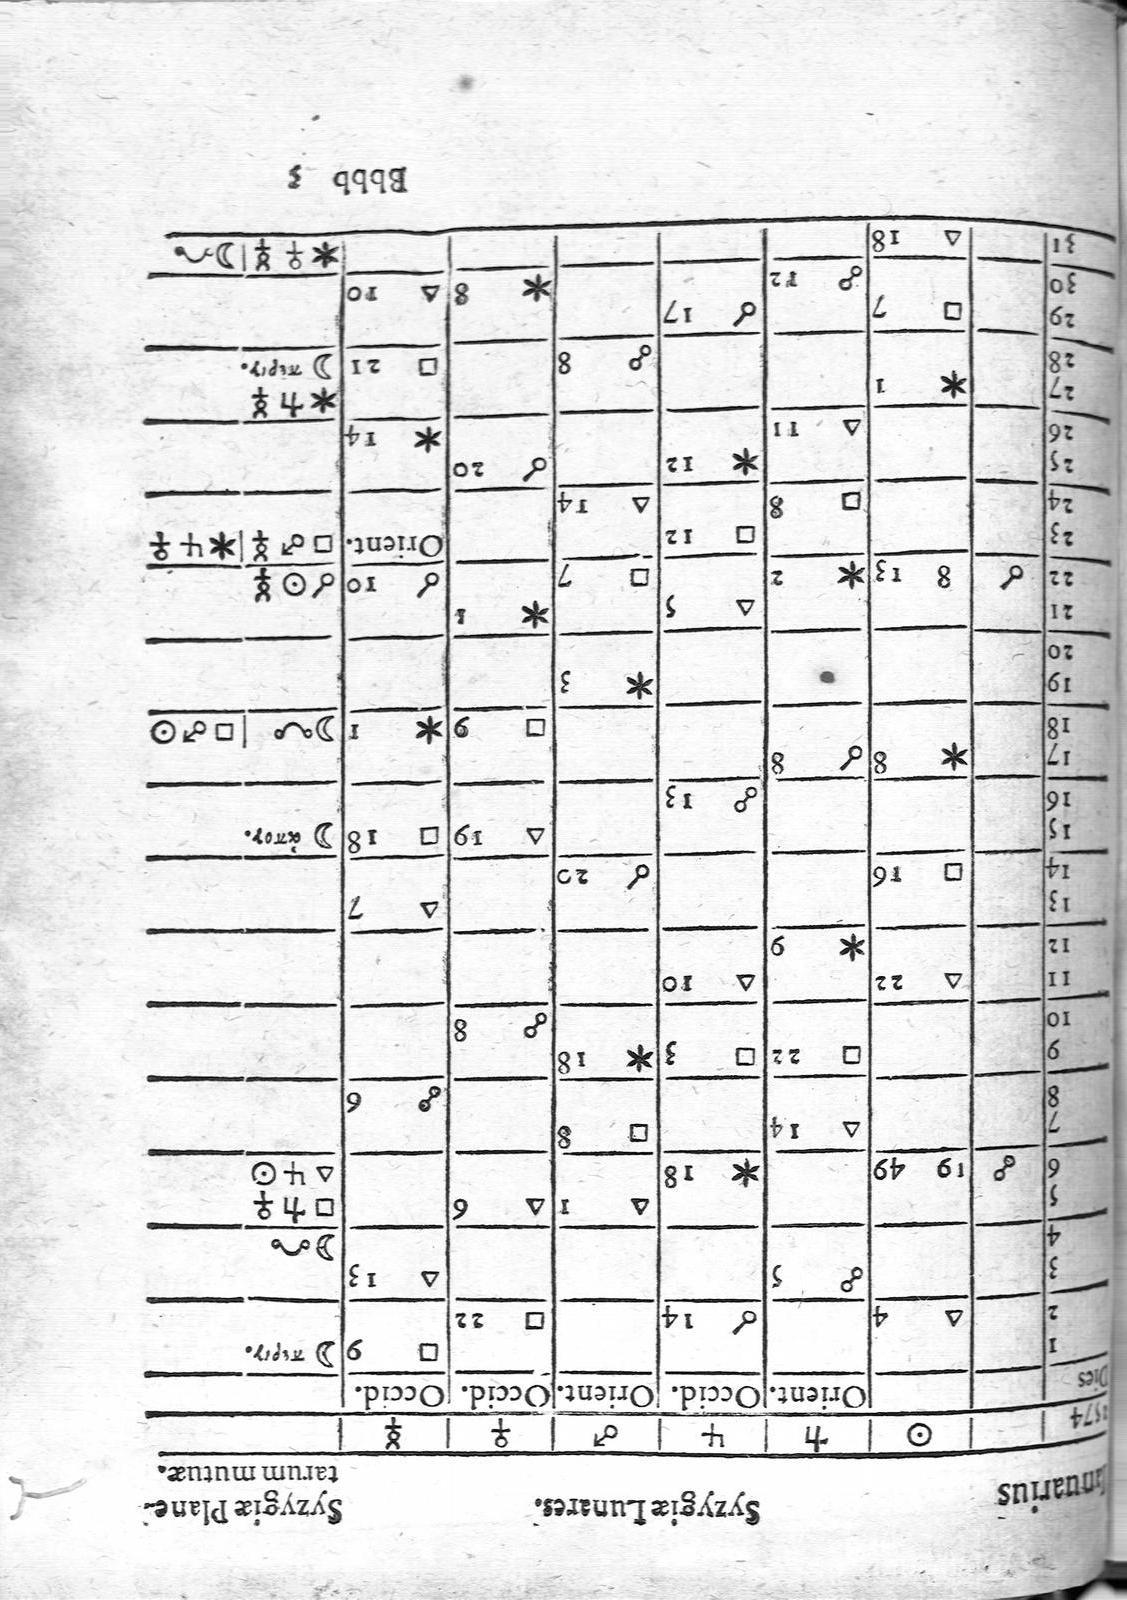 Ianuarius Syzygiæ Lunares. Syzygiæ Plane-
tarum mutuæ.
1574 ☉ ♄ ♃ ♂ ♀ ☿
Dies Orient. Occid. Orient. Occid. Occid.
1 □ 9 ☽ περιγ.
2 △ 4 ☌ 14 □ 22
3 ☍ 5 △ 13
4 ☽ ☊
5 △ 1 △ 6 □ ♄ ♀
6 ☍ 19 49 ✱ 18 △ ♃ ☉
7 △ 14 □ 8
8 ☍ 6
9 □ 22 □ 3 ✱ 18
10 ☍ 8
11 △ 22 △ 10
12 ✱ 9
13 △ 7
14 □ 16 ☌ 20
15 △ 19 □ 18 ☽ ἀπογ.
16 ☍ 13
17 ✱ 8 ☌ 8
18 □ 9 ✱ 1 ☽ ☋ | □ ♂ ☉
19 ✱ 3
20
21 △ 5 ✱ 1
22 ☌ 8 13 ✱ 2 □ 7 ☌ 10 ☌ ☉ ☿
23 □ 12 Orient. □ ♂ ☿ | ✱ ♃ ♀
24 □ 8 △ 14
25 ✱ 12 ☌ 20
26 △ 11 ✱ 14
27 ✱ 1 ✱ ♄ ☿
28 ☍ 8 □ 21 ☽ περιγ.
29 □ 7 ☌ 17
30 ☍ 12 ✱ 8 △ 10
31 △ 18 ✱ ♀ ☿ | ☽ ☊
Bbbb 3